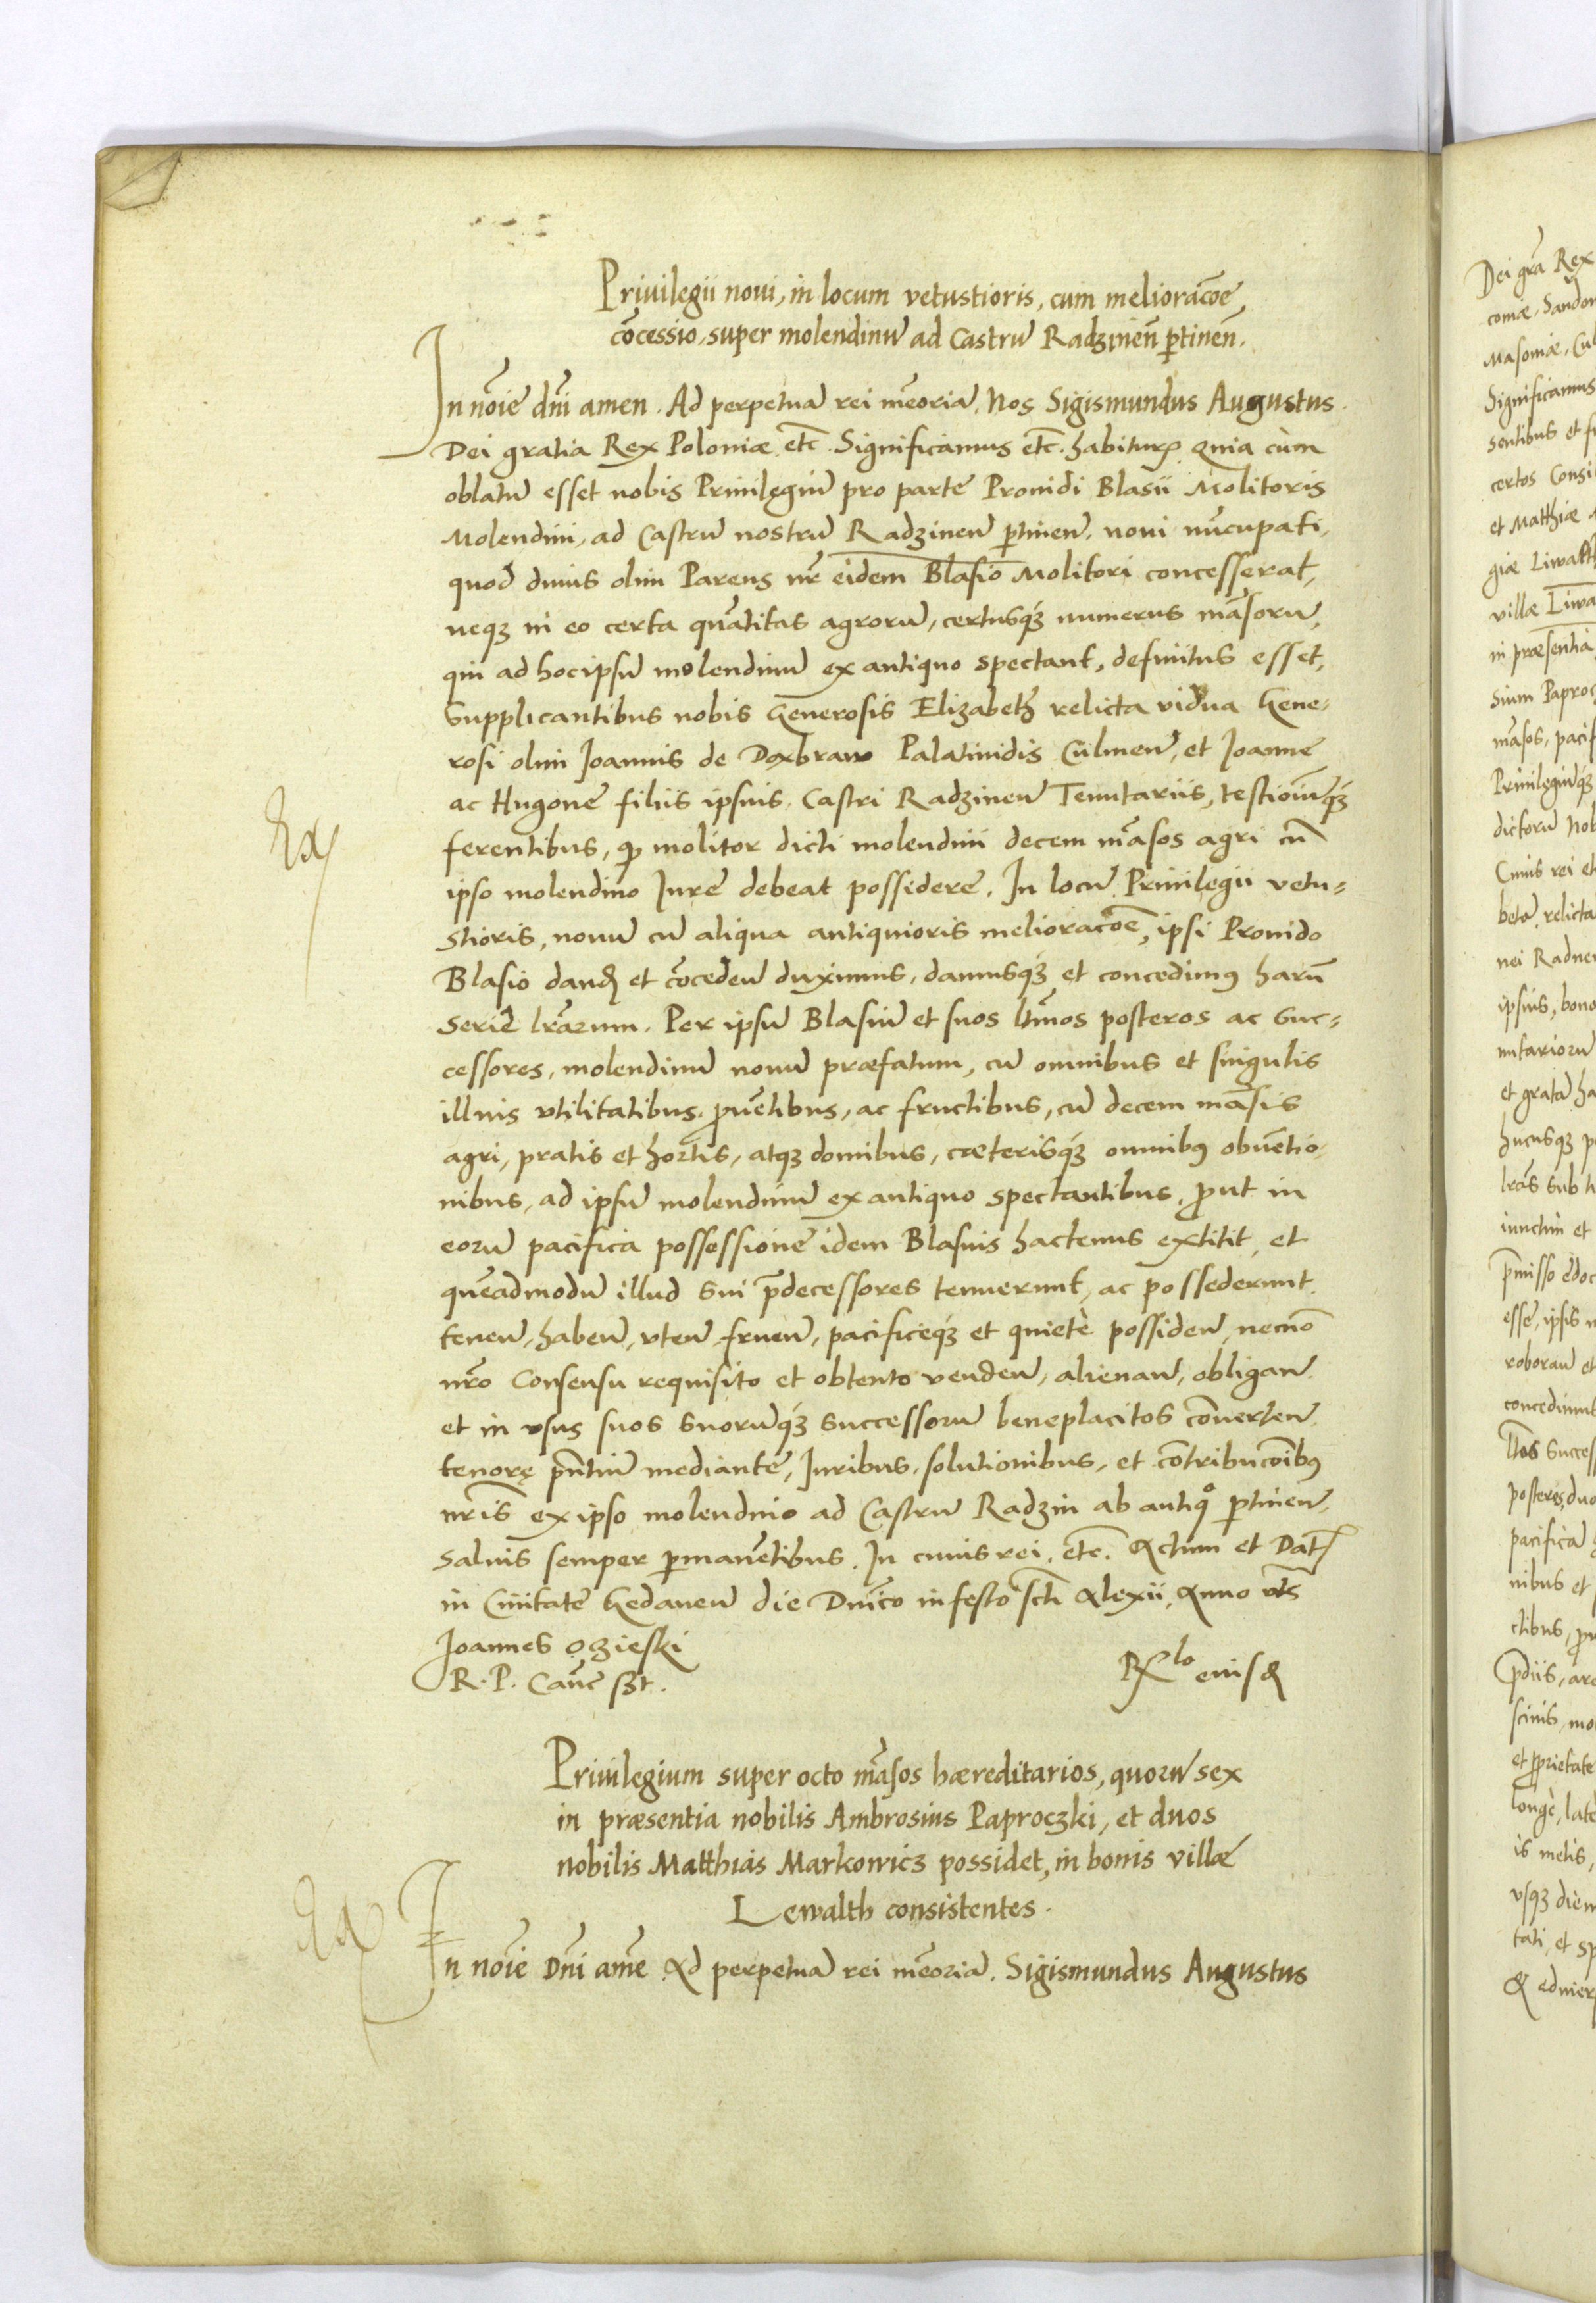 Priuilegii noui, in locum vetustioris, cum melioracõe
cõcessio, super molendinũ ad Castrũ Radzineñ ꝑtineñ.
In nõie dñi amen. Ad perpetuã rei mẽoriã. Nos Sigismundus Augustus.
Dei gratia Rex Poloniæ etc̃. Significamus etc̃. habiturꝭ. Quia cùm
oblatũ esset nobis Priuilegiũ pro parte Prouidi Blasii Molitoris
Molendini, ad Castrũ nostrũ Radzineñ ꝑtineñ. noui nũcupati,
quod diuus olim Parens nr̃ eidem Blasio Molitori concesserat,
neqꝫ in eo certa quãtitas agrorũ, certusqꝫ numerus mãsorũ,
qui ad hoc ipsũ molendinũ ex antiquo spectant, definitus esset,
Supplicantibus nobis Generosis Elizabetḥ relicta vidua Gene-
rosi olim Ioannis de Doxbraw Palatinidis Culmeñ, et Ioanne
ac Hugone filiis ipsius, Castri Radzineñ Tenutariis, testioniũqꝫ
ferentibus, ꝙ molitor dicti molendini decem mãsos agri cũ
ipso molendino Iure debeat possidere. In locũ Priuilegii vetu-
stioris, nouũ cũ aliqua antiquioris melioracõe, ipsi Prouido
Blasio dandꝭ et cõcedeñ duximus, damusqꝫ et concedimꝰ harũ
serie lrãrum. Per ipsũ Blasiũ et suos ltĩmos posteros ac suc-
cessores, molendinũ nouũ præfatum, cũ omnibus et singulis
illius vtilitatibus, ꝓuẽtibus, ac fructibus, cũ decem mãsis
agri, pratis et hortis, atqꝫ domibus, cæterisqꝫ omnibꝰ obuẽtio-
nibus, ad ipsũ molendinũ ex antiquo spectantibus, ꝓut in
eorũ pacifica possessione idem Blasius hactenus extitit, et
quẽadmodũ illud sui p̃decessores tenuerunt, ac possederunt.
teneñ, habeñ, vteñ frueñ, pacificeqꝫ et quietè possideñ, necnõ
nr̃o Consensu requisito et obtento vendeñ, alienañ, obligañ
et in vsus suos suorũqꝫ successorũ beneplacitos cõuerteñ
tenore p̃ntiũ mediante, Iuribus, solutionibus, et cõtribucõibꝰ
nr̃is ex ipso molendino ad Castrũ Radzin ab antiqͦ ꝑtineñ.
saluis semper ꝑmanẽtibus. In cuius rei. etc̃. Actum et Datꝭ
in Ciuitate Gedaneñ die Dnĩco in festo sct̃i Alexii, Anno vts̃
Ioannes Oczieski
R. P. Cañc sßt.
Rx lo eiusꝺ
Ex
Priuilegium super octo mãsos hæreditarios, quorũ sex
in præsentia nobilis Ambrosius Paproczki, et duos
nobilis Matthias Markowicz possidet, in bonis villæ
Lewalth consistentes.
In nõie Dñi amẽ Ad perpetuã rei mẽoriã. Sigismundus Augustus
Ex
Dei grã Rex
comæ, Sando
Masoniæ, Cul
Significamus
sentibus et
certos Consi
et Matthiæ
giæ Liwalt
villæ
in præsentia
sium Paproc
mãsos, pacif
Priuilegiũqꝫ
dictorũ Nob
Cuius rei et
relicta
nei Radne
ipsius, bono
nutariorũ
et gratã ha
hucusqꝫ p
lrãs sub
iunctim et
p̃misso edoc
esse, ipsis
roborañ et
concedimus
succes
posteros, duo
pacifica
nibus et
ctibus, ꝓu
et ꝓprietate
longè, late
is metis,
vsqꝫ diem
tati, et sp